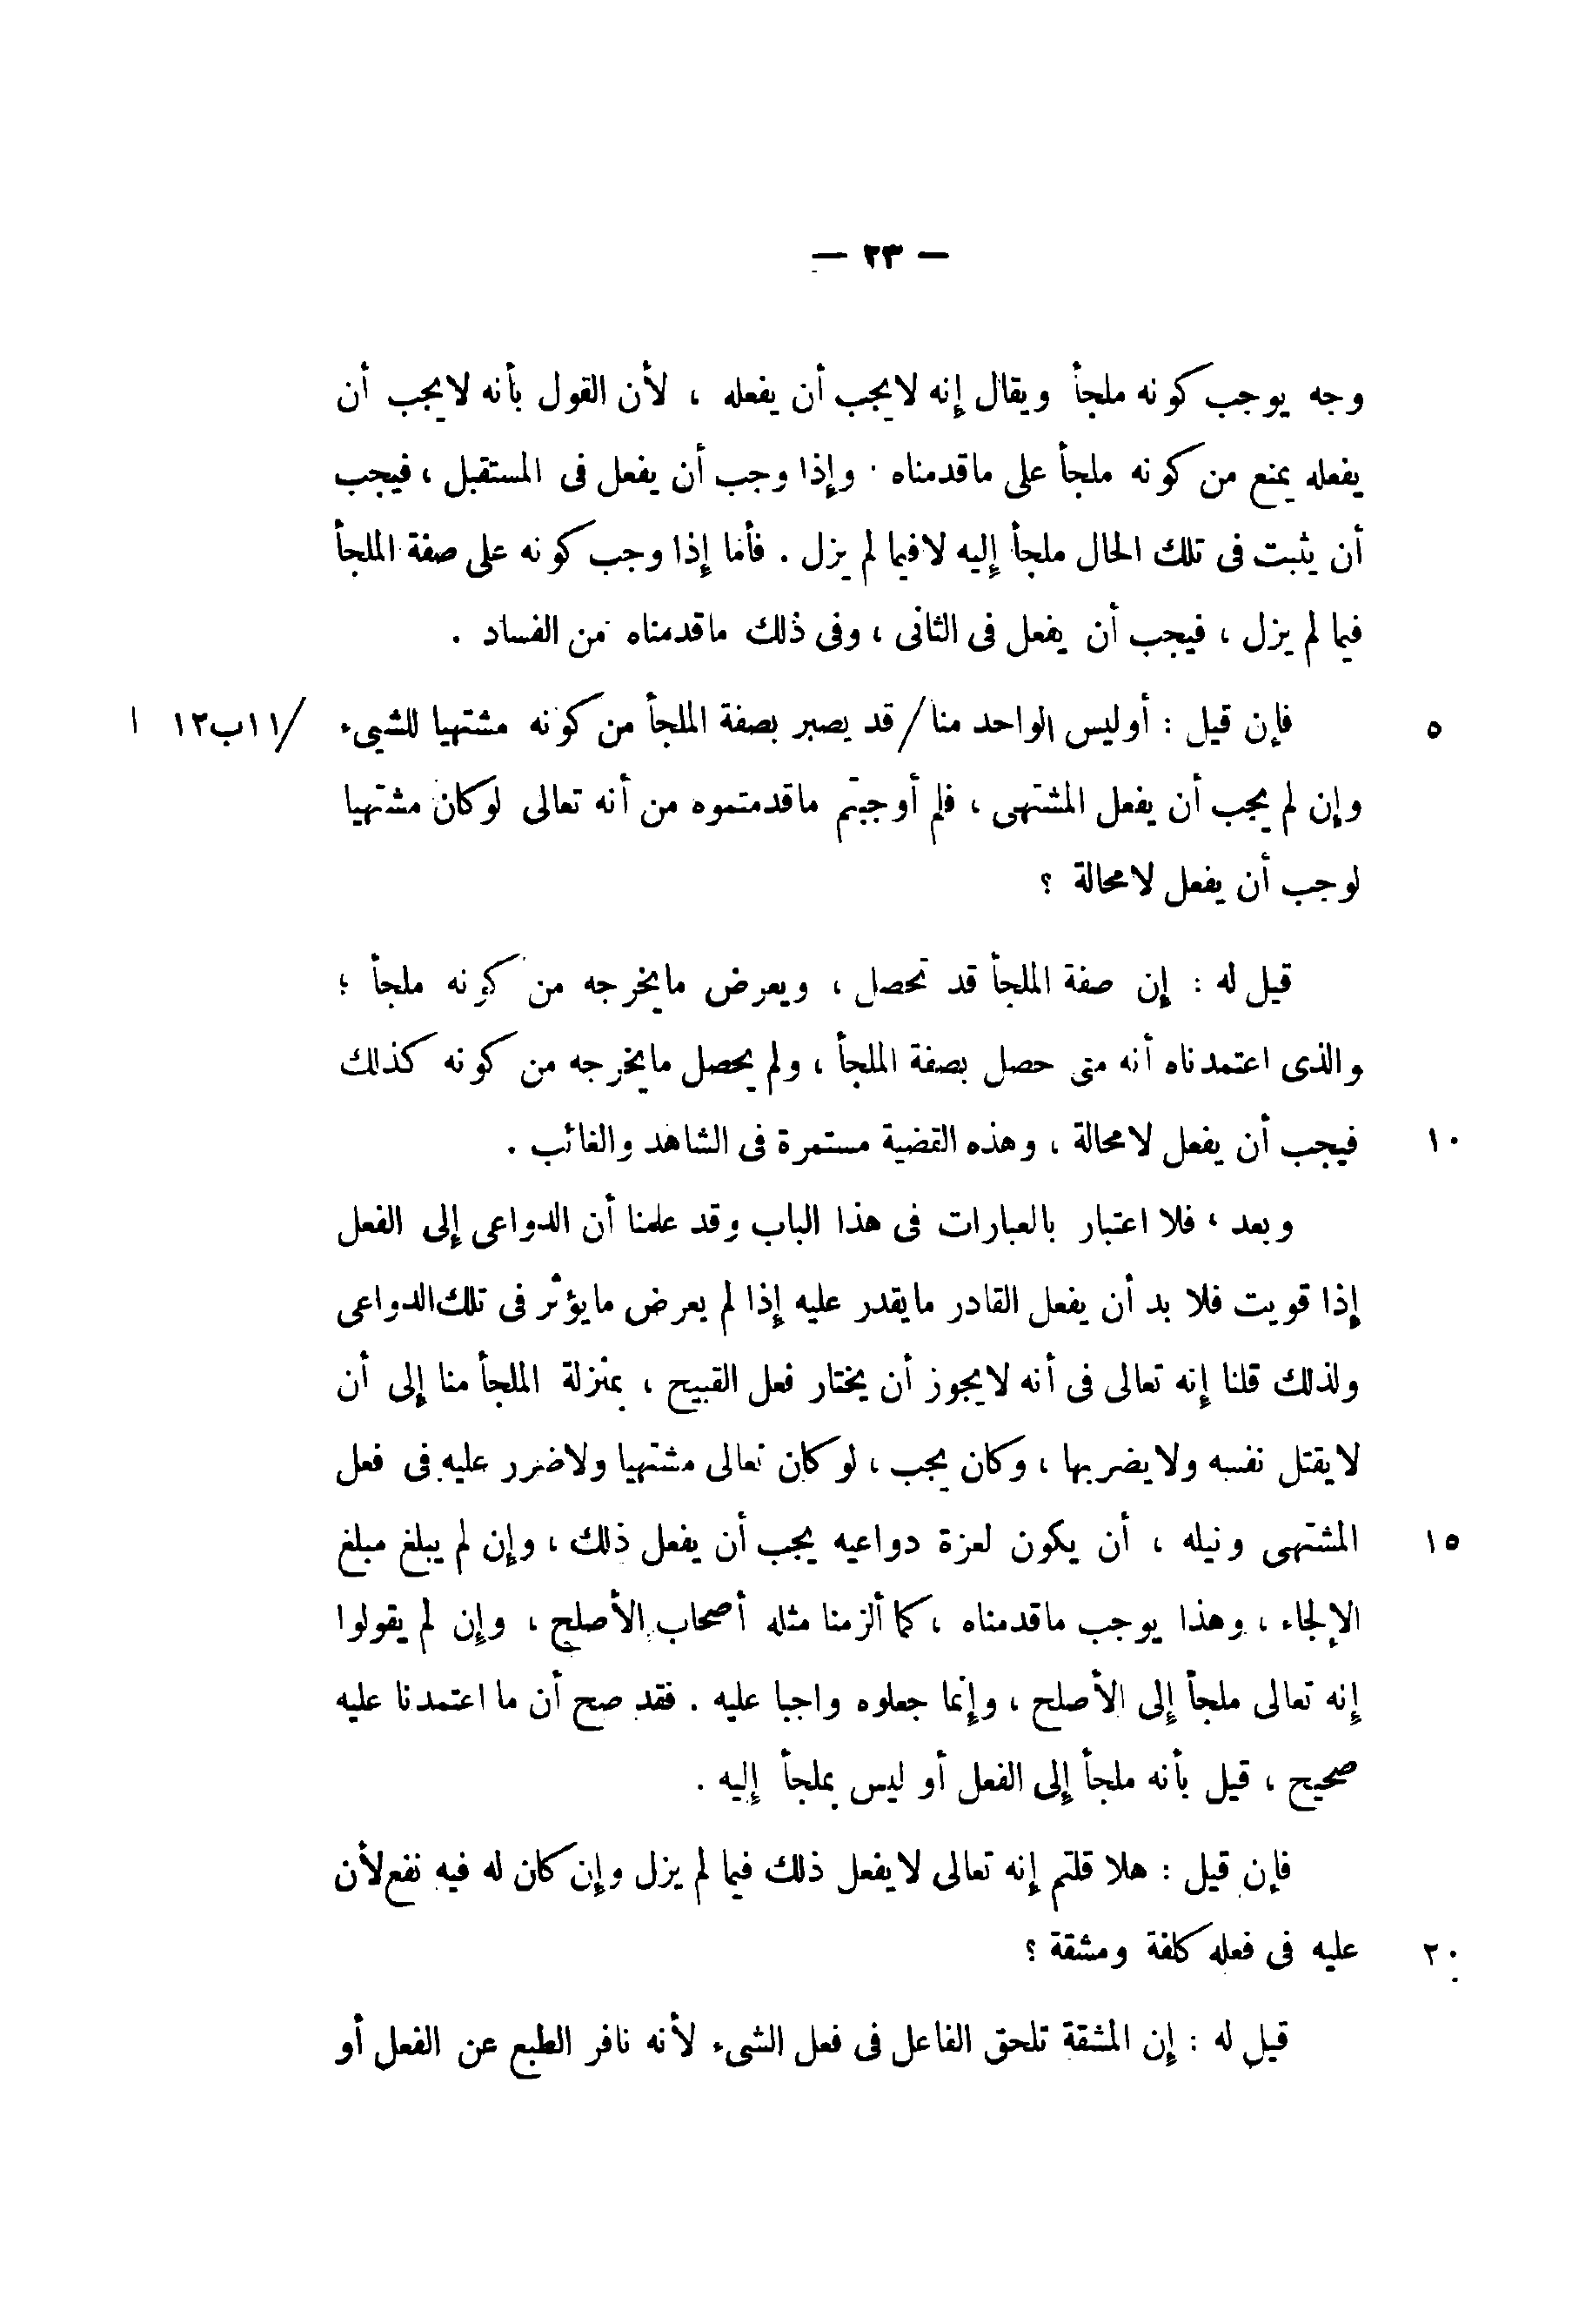 — ٢٣ —
وجه يوجب كونه ملجأ ويقال إنه لا يجب أن يفعله ، لأن القول بأنه لا يجب أن
يفعله يمنع من كونه ملجأ على ما قدمناه . وإذا وجب أن يفعل فى المستقبل ، فيجب
أن يثبت فى تلك الحال ملجأ إليه لا فيما لم يزل . فأما إذا وجب كونه على صفة الملجأ
فيما لم يزل ، فيجب أن يفعل فى الثانى ، وفى ذلك ما قدمناه من الفساد .
٥ فإن قيل : أوليس الواحد منا / قد يصير بصفة الملجأ من كونه مشتهيا للشىء /١١ب١٢ ا
وإن لم يجب أن يفعل المشتهى ، فلم أوجبتم ما قدمتموه من أنه تعالى لو كان مشتهيا
لوجب أن يفعل لا محالة ؟
قيل له : إن صفة الملجأ قد تحصل ، ويعرض ما يخرجه من كونه ملجأ ؛
والذى اعتمدناه أنه متى حصل بصفة الملجأ ، ولم يحصل ما يخرجه من كونه كذلك
١٠ فيجب أن يفعل لا محالة ، وهذه القضية مستمرة فى الشاهد والغائب .
وبعد ، فلا اعتبار بالعبارات فى هذا الباب وقد علمنا أن الدواعى إلى الفعل
إذا قويت فلا بد أن يفعل القادر ما يقدر عليه إذا لم يعرض ما يؤثر فى تلك الدواعى
ولذلك قلنا إنه تعالى فى أنه لا يجوز أن يختار فعل القبيح ، بمنزلة الملجأ منا إلى أن
لا يقتل نفسه ولا يضربها ، وكان يجب ، لو كان تعالى مشتهيا ولا ضرر عليه فى فعل
١٥ المشتهى ونيله ، أن يكون لعزة دواعيه يجب أن يفعل ذلك ، وإن لم يبلغ مبلغ
الإلجاء ، وهذا يوجب ما قدمناه ، كما ألزمنا مثله أصحاب الأصلح ، وإن لم يقولوا
إنه تعالى ملجأ إلى الأصلح ، وإنما جعلوه واجبا عليه . فقد صح أن ما اعتمدنا عليه
صحيح ، قيل بأنه ملجأ إلى الفعل أو ليس بملجأ إليه .
فإن قيل : هلا قلتم إنه تعالى لا يفعل ذلك فيما لم يزل وإن كان له فيه نفع لأن
٢٠ عليه فى فعله كلفة ومشقة ؟
قيل له : إن المشقة تلحق الفاعل فى فعل الشىء لأنه نافر الطبع عن الفعل أو